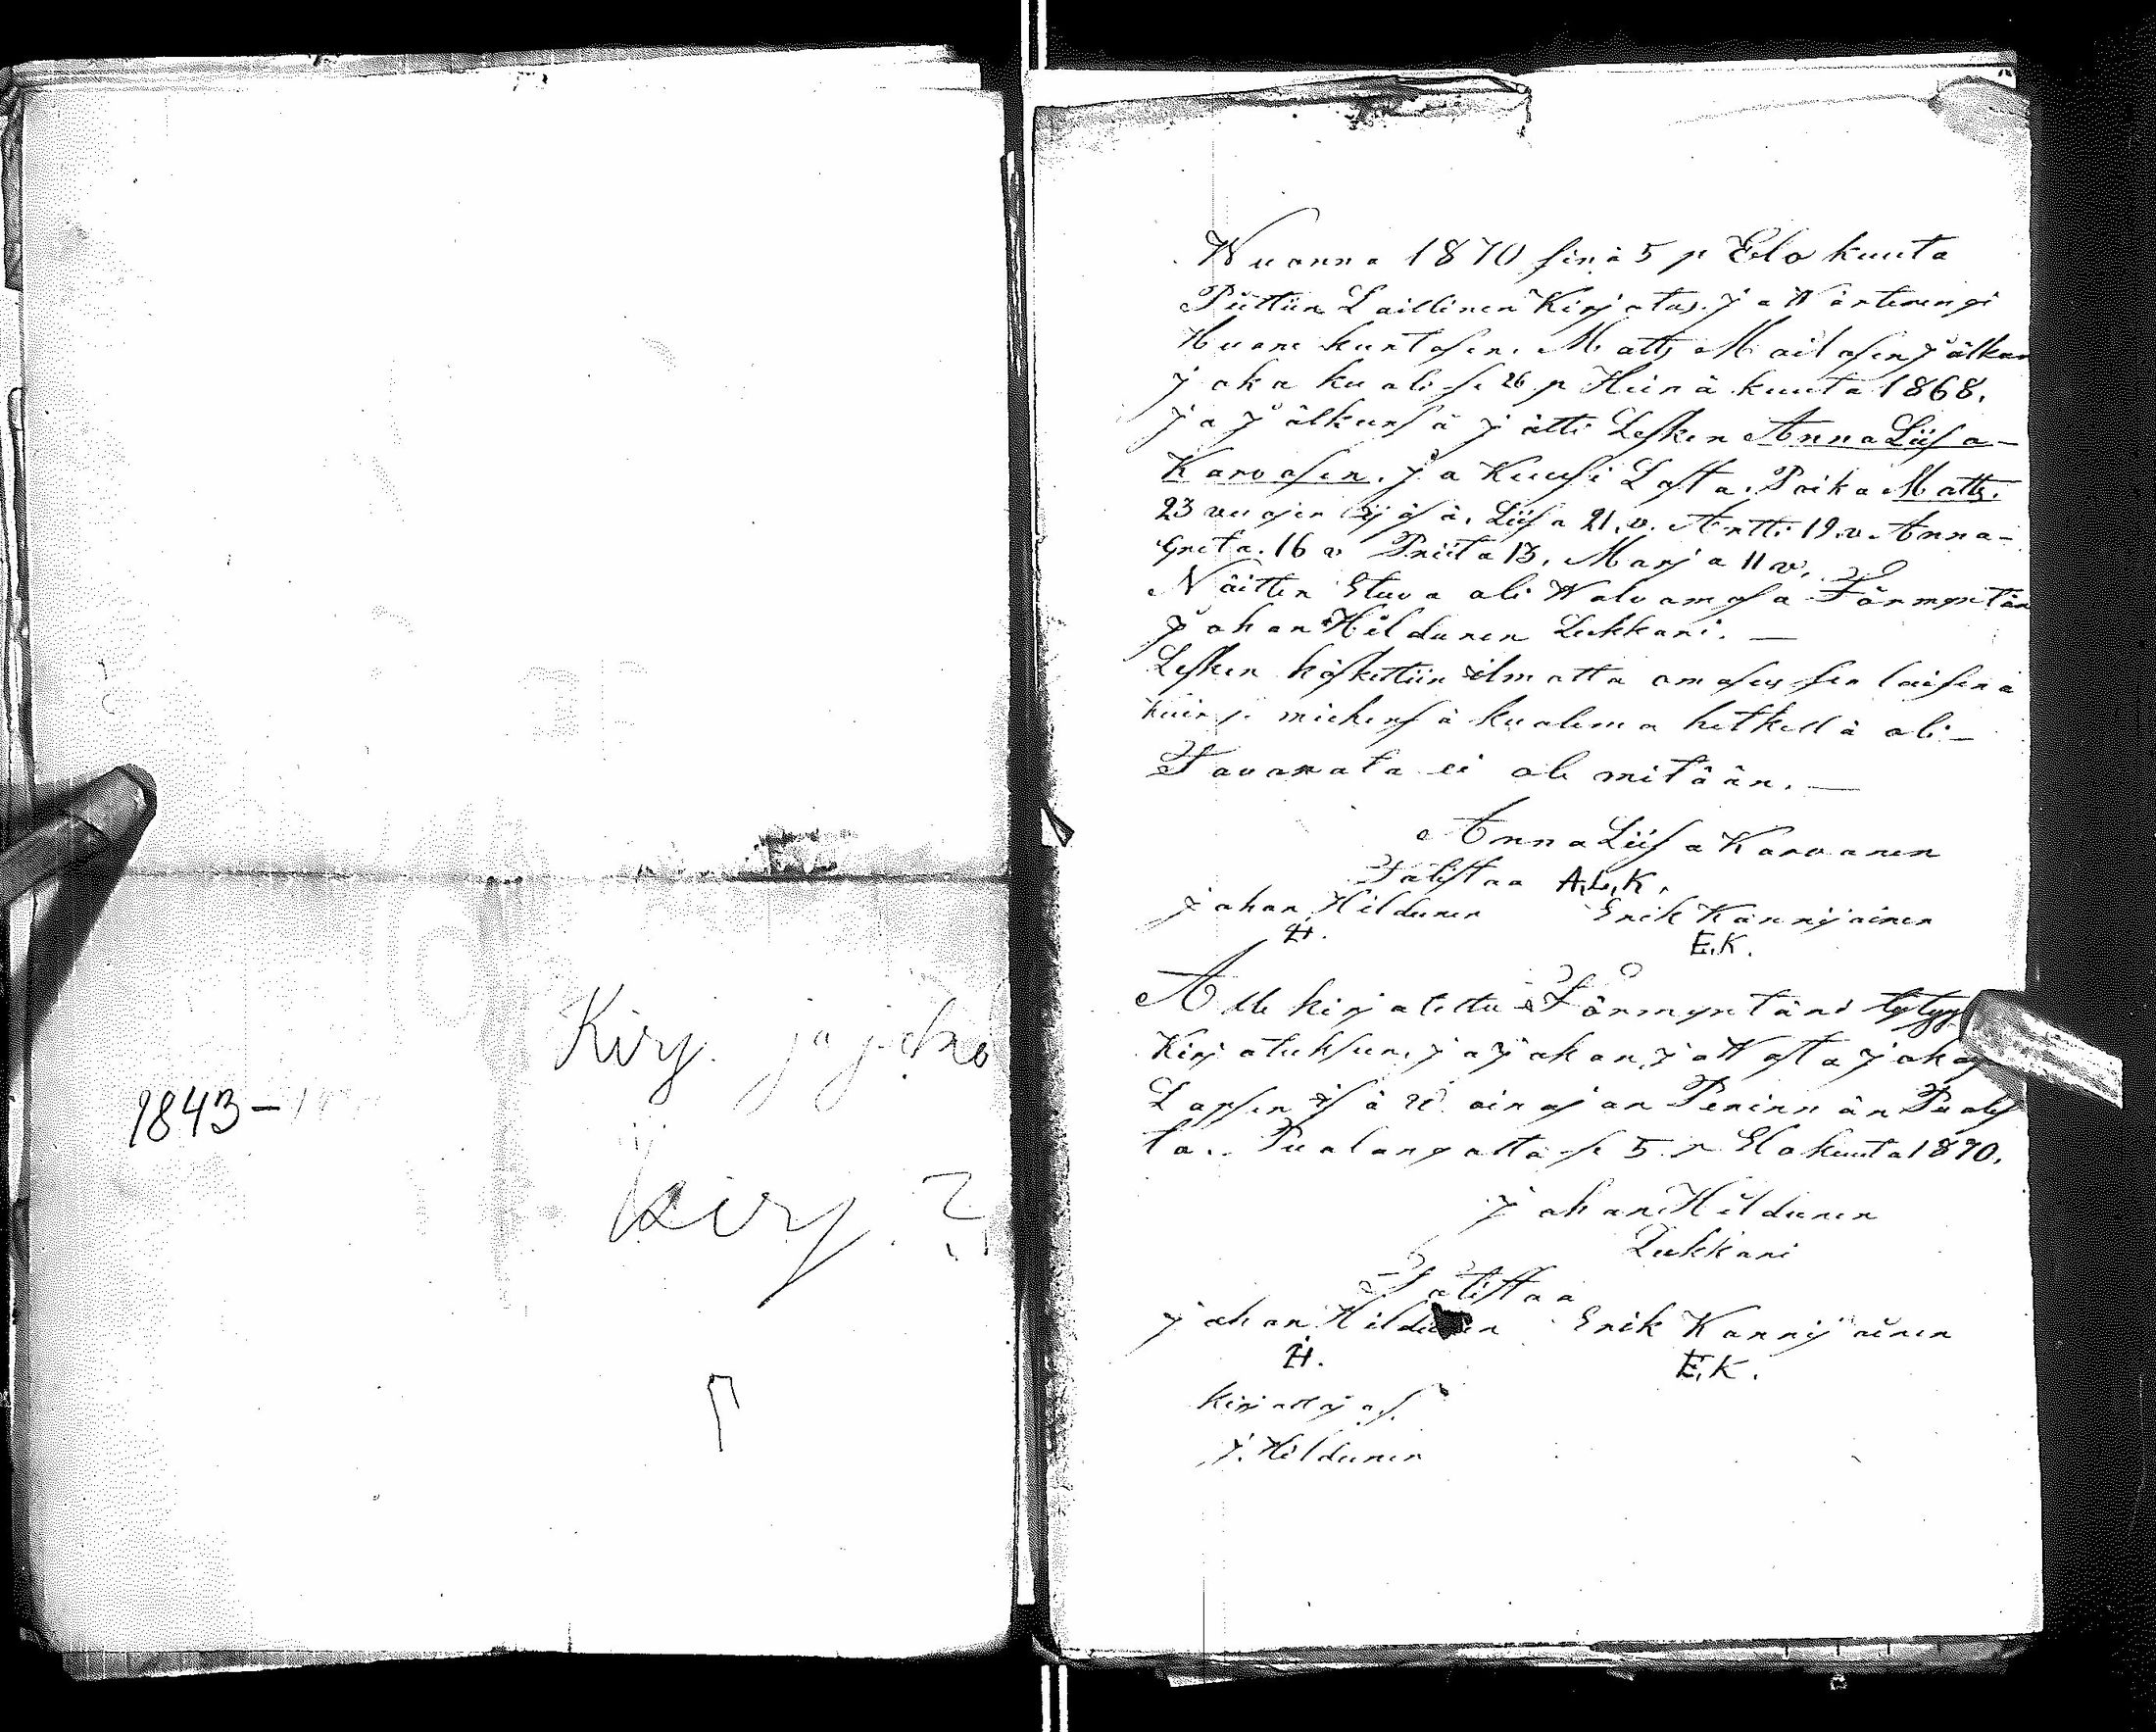 Kirj. ja jako
1843-
kirj. 2
Wuonna 1870 sinä 5 p Elo kuuta
Piettiin Laillinen Kirjotus. ja Wärterengi
Huone kuntasen. Matts Mailasen jälken
joka kuoli se 26 p Heinä kuuta 1868.
ja jälkensä jätti Lesken Anna Liisa-
Karvosen. ja Kuusi Lasta. Poika Matts.
23 vuojen ijäsä. Liisa 21. v. Antti 19. v. Anna-
Greta. 16 v Priita 13. Marja 11 v.
Näitten Etuva oli Walvomasa Förmyntäri
Johan Hildunen Lukkari. —
Lesken käskettiin ilmotta omasus sen laisena
kuin se miehensä kuolema hetkellä oli —
Tavarata ei ole mitään. —
Anna Liisa Karvanen
Tatistaa A.L.K.
Johan Hildunen Erik Kännijäinen
H. E.K.
Alle kirjotettu Förmyntäri tytyy
Kirjotuksen, ja jakon, ja Wasta
Lapsen Isä Wainajan Perinnän Puoles
ta. Puolangalta se 5 p Elokuuta 1870.
Johan Hildunen
Lukkari
Tatistaa
Johan Hildunen Erik Kännijäinen
H. E.K.
kirjottaja
J. Hildunen